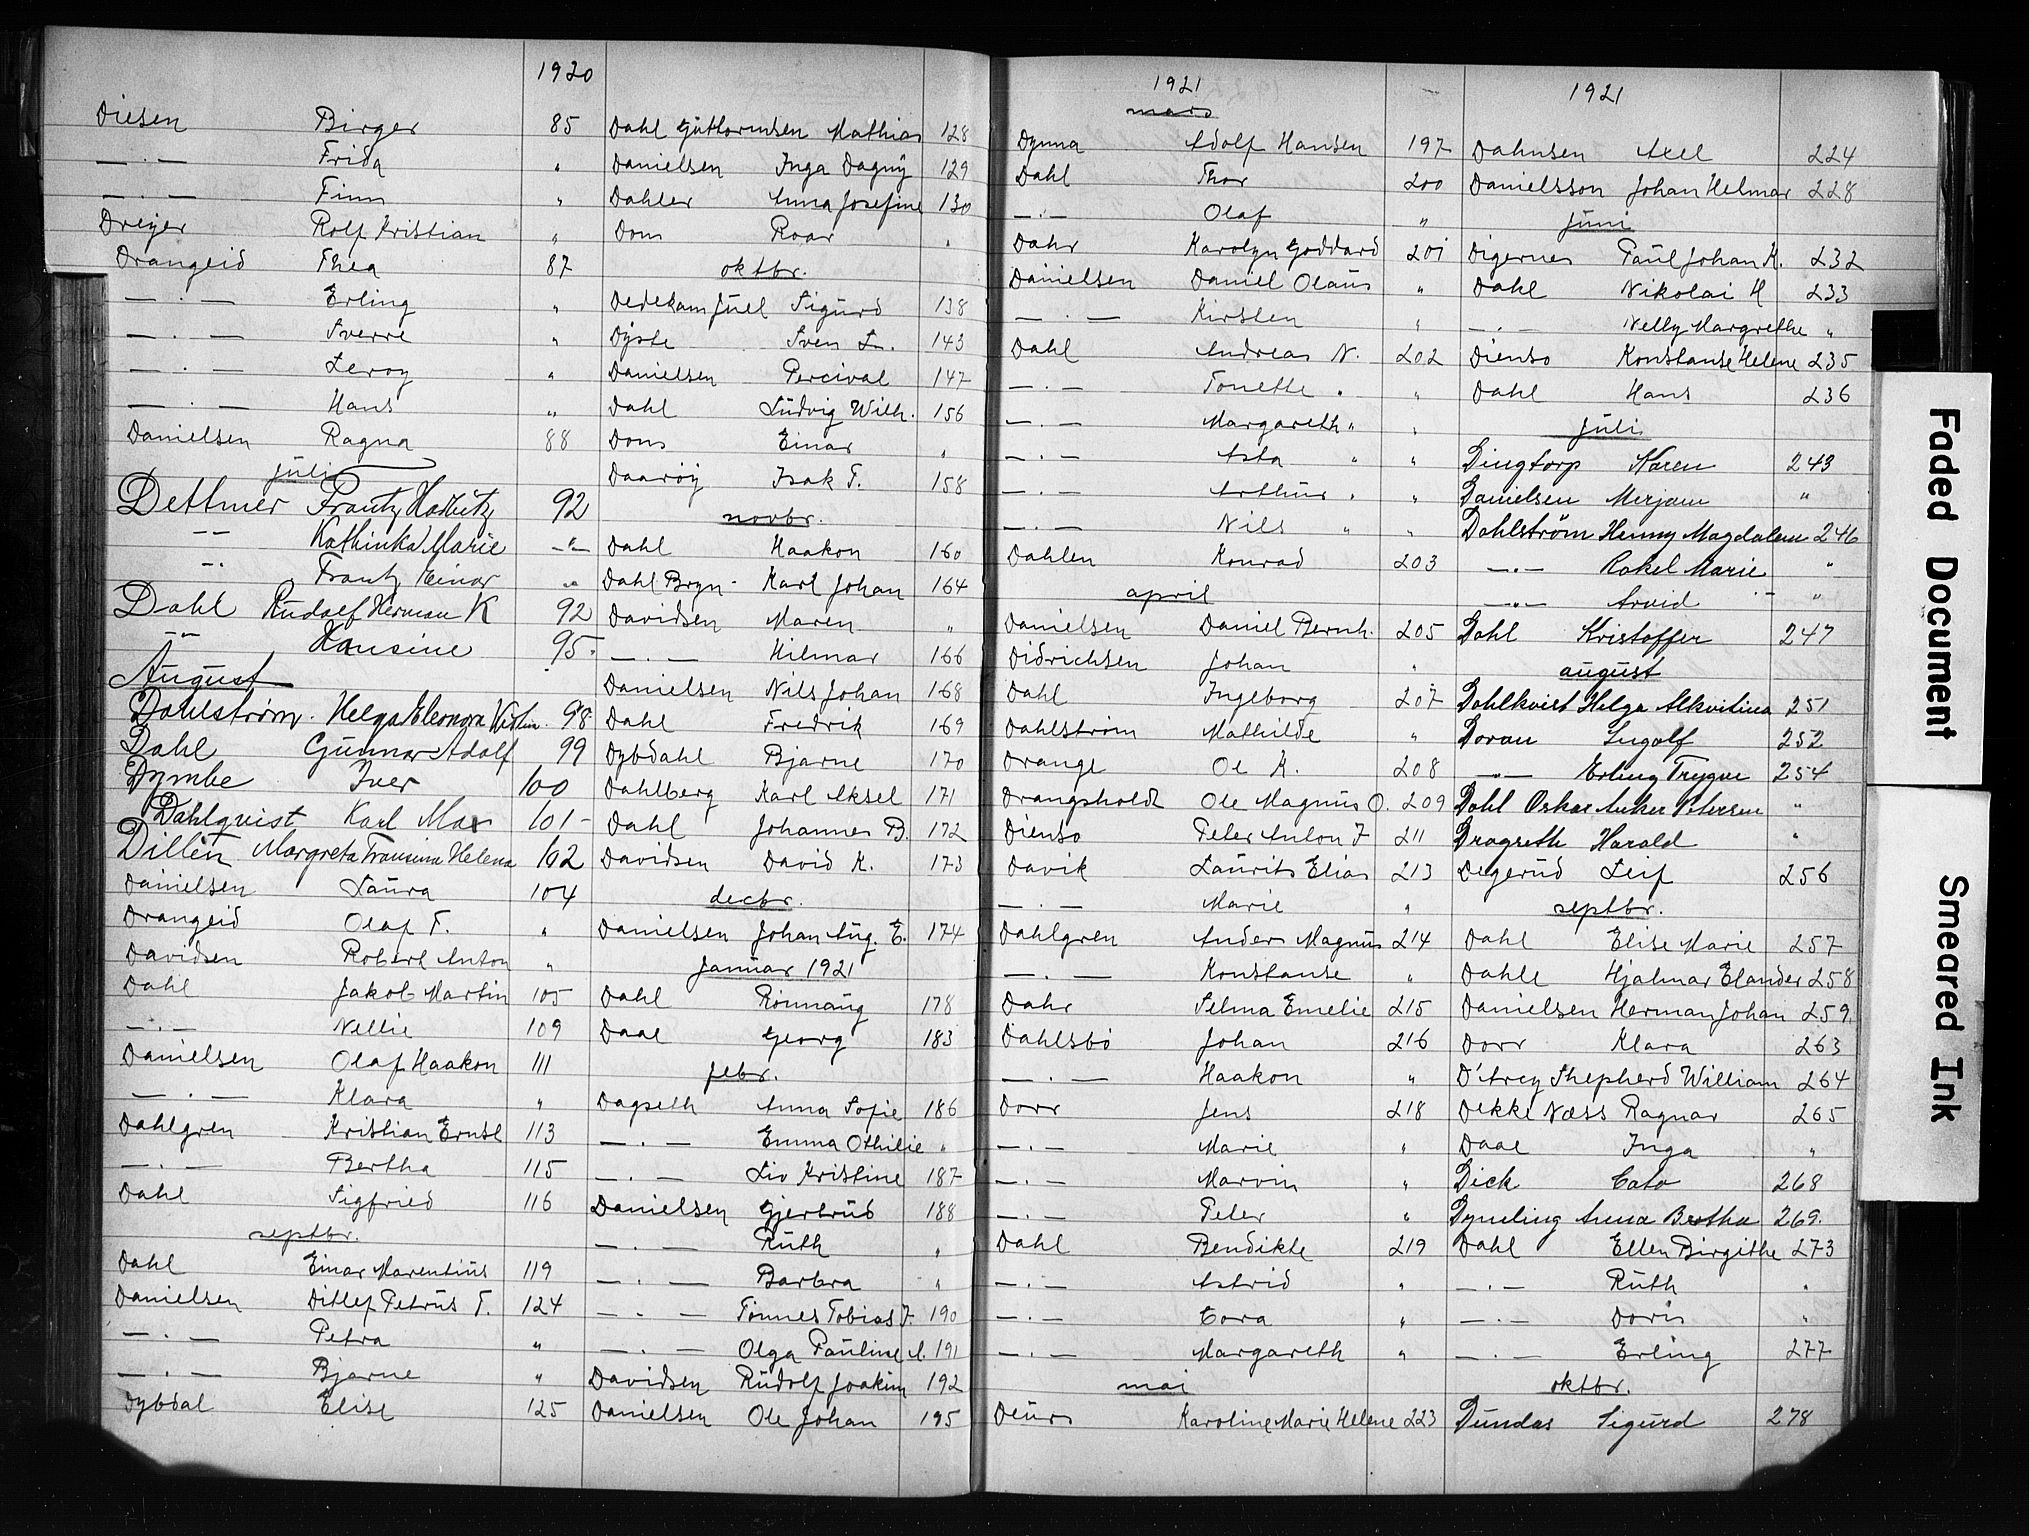 1920
Diesen Birger 85
—·— Frida "
—·— Finn "
Dreyer Rolf Kristian "
Drangeid Thea 87
—·— Erling "
—·— Sverre "
—·— Leroy "
—·— Hans "
Danielsen Ragna 88
juli
Dettmer Frantz 92
-"- Kathinka Marie -"-
-"- Frantz Einar "
Dahl Rudolf Herman K 92
-"- Hansine 95.
August
Dahlstrøm. Helga Eleonora 98
Dahl Gunnar Adolf 99
Dymbe Iver 100
Dahlqvist Karl Max 101-
Dillén Margreta Fransina Helena 102
Danielsen Laura 104
Drangeid Olaf T. "
Davidsen Robert Anton "
Dahl Jakob Martin 105
—·— Nellie 109
Danielsen Olaf Haakon 111
—·— Klara "
Dahlgren Kristian Ernst 113
—·— Bertha 115
Dahl Sigfried 116
septbr.
Dahl Einar Marentius 119
Danielsen Ditlef Petrus T. 124
—·— Petra "
—·— Bjarne "
Dybdal Elise 125
Dahl Guttormsen Mathias 128
Danielsen Inga Dagny 129
Dahler Anna Josefine 130
Dons Roar "
oktbr.
Dedekam Juel Sigurd 138
Dyste Sven L. 143
Danielsen Percival 147
Dahl Ludvig Wilh. 156
Dons Einar "
Daarøy Isak T. 158
novbr.
Dahl Haakon 160
Dahl Bryn- Karl Johan 164
Davidsen Maren "
—·— Hilmar 166
Danielsen Nils Johan 168
Dahl Fredrik 169
Dybdahl Bjarne 170
Dahlberg Karl Aksel 171
Dahl Johannes B. 172
Davidsen David K. 173
decbr.
Danielsen Johan Aug. E. 174
Januar 1921
Dahl Rønnaug 178
Daae Georg 183
febr.
Dagseth Anna Sofie 186
—·— Emma Othilie "
—·— Liv Kristine 187
Danielsen Gjertrud 188
—·— Ruth "
—·— Barbra "
—·— Tønnes Tobias J. 190
—·— Olga Pauline A. 191
Davidsen Rudolf Joakim 192
Danielsen Ole Johan 195
1921
mars
Dynna Adolf Hansen 197
Dahl Thor 200
—·— Olaf "
Dahr Karolyn Goddard 201
Danielsen Daniel Olaus "
—·— Kirsten "
Dahl Andreas N. 202
—·— Tonette " "
—·— Margareth " "
—·— Asta " "
—·— Arthur " "
—·— Nils " "
Dahlen Konrad 203
april
Danielsen Daniel Bernh. 205
Didrichsen Johan "
Dahl Ingeborg 207
Dahlstrøm Mathilde "
Drange Ole K. 208
Drangsholdt Ole Magnus O. 209
Dienso Peter Anton F 211
Davik Laurits Elias 213
—·— Marie "
Dahlgren Anders Magnus 214
—·— Konstanse "
Dahr Selma Emelie 215
Dahlsbø Johan 216
—·— Haakon "
Dorr Jens 218
—·— Marie "
—·— Marvin "
—·— Peter "
Dahl Bendikte 219
—·— Astrid "
—·— Cora "
—·— Margareth "
mai
Deurs Karoline Marie Helene 223
1921
Dahnsen Axel 224
Danielsson Johan Helmar 228
Juni
Digernes Paul Johan K. 232
Dahl Nikolai H 233
—·— Nelly Margrethe "
Dienso Konstanse Helene 235
Dahl Hans 236
Juli
Dingtorp Karen 243
Danielsen Merjam "
Dahlstrøm Henny Magdalene 246
—"— Rakel Marie "
—"— Arvid "
Dahl Kristoffer 247
august
Dahlkvist Helga Alkvitina 251
Dovan Ingolf 252
—"— Erling Trygve 254
Dahl Oskar Anker Petersen "
Dragseth Harald "
Degerud Leif 256
septbr.
Dahl Elise Marie 257
Dahle Hjalmar Elander 258
Danielsen Herman Johan 259
Dorr Klara 263
D'Arcy Shepherd William 264
Dekke Næss Ragnar 265
Daae Inga "
Dick Cato 268
Dyneling Anna Bertha 269.
Dahl Ellen Birgithe 273
—·— Ruth "
—·— Doris "
—·— Erling 277
oktbr.
Dundas Sigurd 278
Faded Document
Smeared Ink